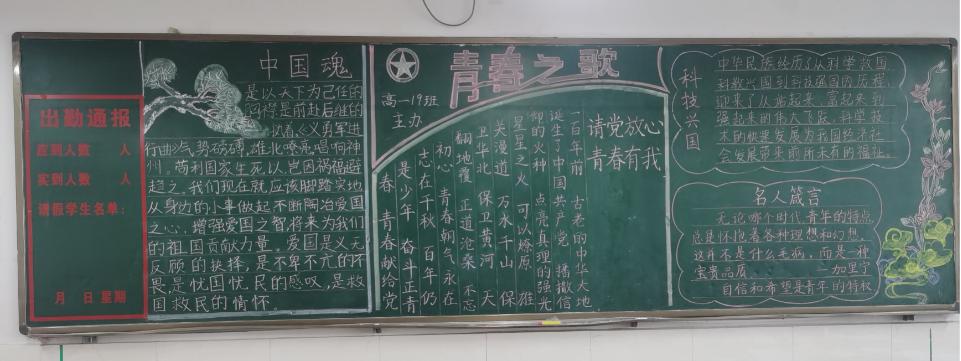 出勤通报
应到人数 人
实到人数 人
请假学生名单：
月 日 星期
中国魂
是以天下为己任的
呵得是前赴后继的
《义勇军进
行曲》气势磅礴，雄北嘹亮，唱响神
州。苟利国家生死以，岂因祸福避
趋之。我们现在就应该脚踏实地
从身边的小事做起不断陶冶爱国
之心，增强爱国之智，将来为我们
的祖国贡献力量。爱国是义无
反顾的抉择，是不卑不亢的不
畏是忧国忧民的感叹，是救
国救民的情怀
青春之歌
高一19班
主办
请党放心
青春有我
一百年前 古老的中华大地
诞生了中国共产党 播撒信
仰的火种 点亮真理的强光
星星之火 可以燎原 雄
关漫道 万水千山 保
卫华北 保卫黄河 天
翻地覆 正道沧桑 不忘
初心 青春朝气永在
志在千秋 百年仍
是少年 奋斗正青
春 青春献给党
科技兴国
中华民族经历了从科学救国
科教兴国到科技强国的历程，
迎来了从站起来、富起来到
强起来的伟大飞跃，科学技
术的快速发展为我国经济社
会发展带来前所未有的福祉。
名人箴言
无论哪个时代，青年的特点
总是怀抱着各种理想和幻想
这并不是什么毛病，而是一种
宝贵品质 ——加里宁
自信和希望是青年的特权